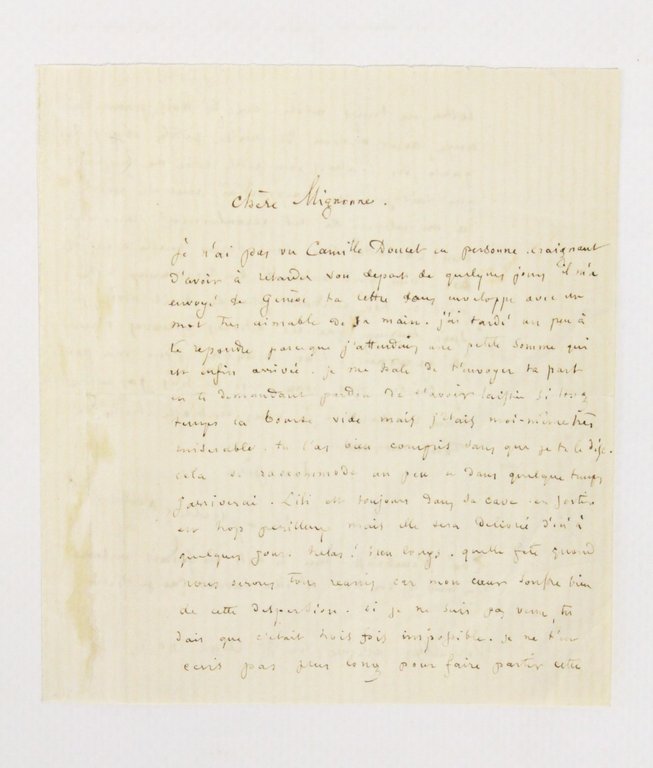 Chère Mignonne.
Je n'ai pas vu Camille Doucet en personne. craignant
d'avoir à retarder son depart de quelques jours il m'a
envoyé de Genève ta lettre sans enveloppe avec un
mot très aimable de sa main. j'ai tardé un peu à
te repondre parceque j'attendais une petite somme qui
est enfin arrivée. je me hate de t'envoyer ta part
en te demandant pardon de t'avoir laissée si long
temps la bourse vide mais j'étais moi-même très
miserable. tu l'as bien compris sans que je te le dise.
cela se raccommode un peu et dans quelque temps
j'arriverai. Lili est toujours dans sa cave. en sortir
est trop perilleux mais elle sera delivrée d'ici à
quelques jours. helas! bien longs. quelle fête quand
nous serons tous reunis car mon cœur souffre bien
de cette dispersion. si je ne suis pas venu, tu
sais que c'était trois fois impossible. je ne t'en
ecris pas plus long pour faire partir cette